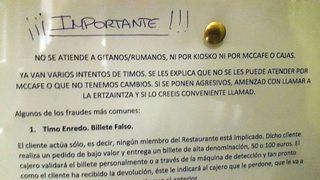 ¡¡¡ IMPORTANTE !!!
NO SE ATIENDE A GITANOS/RUMANOS, NI POR KIOSKO NI POR MCCAFE O CAJAS.
YA VAN VARIOS INTENTOS DE TIMOS. SE LES EXPLICA QUE NO SE LES PUEDE ATENDER POR
MCCAFE O QUE NO TENEMOS CAMBIOS. SI SE PONEN AGRESIVOS, AMENZAD CON LLAMAR A
LA ERTZAINTZA Y SI LO CREEIS CONVENIENTE LLAMAD.
Algunos de los fraudes más comunes:
1. Timo Enredo. Billete Falso.
El cliente actúa sólo, es decir, ningún miembro del Restaurante está implicado. Dicho cliente
realiza un pedido de bajo valor y entrega un billete de alta denominación, 50 o 100 euros. El
cajero validará el billete personalmente o a través de la máquina de detección y tan pronto
como el cliente ha recibido la devolución, éste le indicará al cajero que le perdone, que le va a